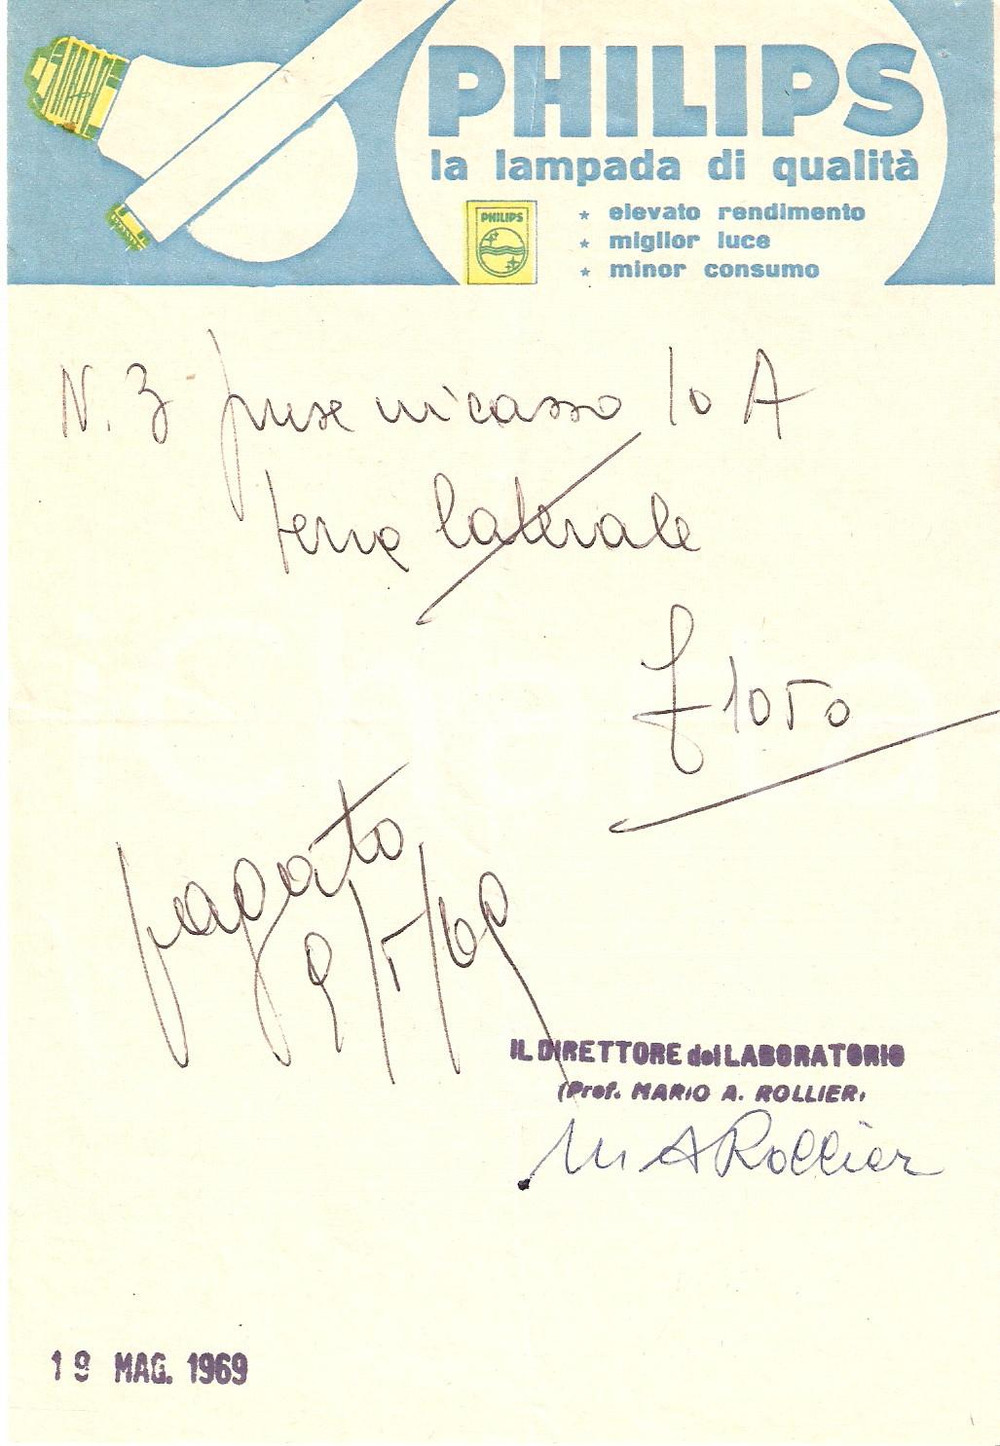 PHILIPS
la lampada di qualità
PHILIPS
* elevato rendimento
* miglior luce
* minor consumo
N. 3 prese incasso 10 A
terra laterale
£ 1050
pagato
9/5/69
IL DIRETTORE del LABORATORIO
(Prof. MARIO A. ROLLIER)
M A Rollier
19 MAG. 1969